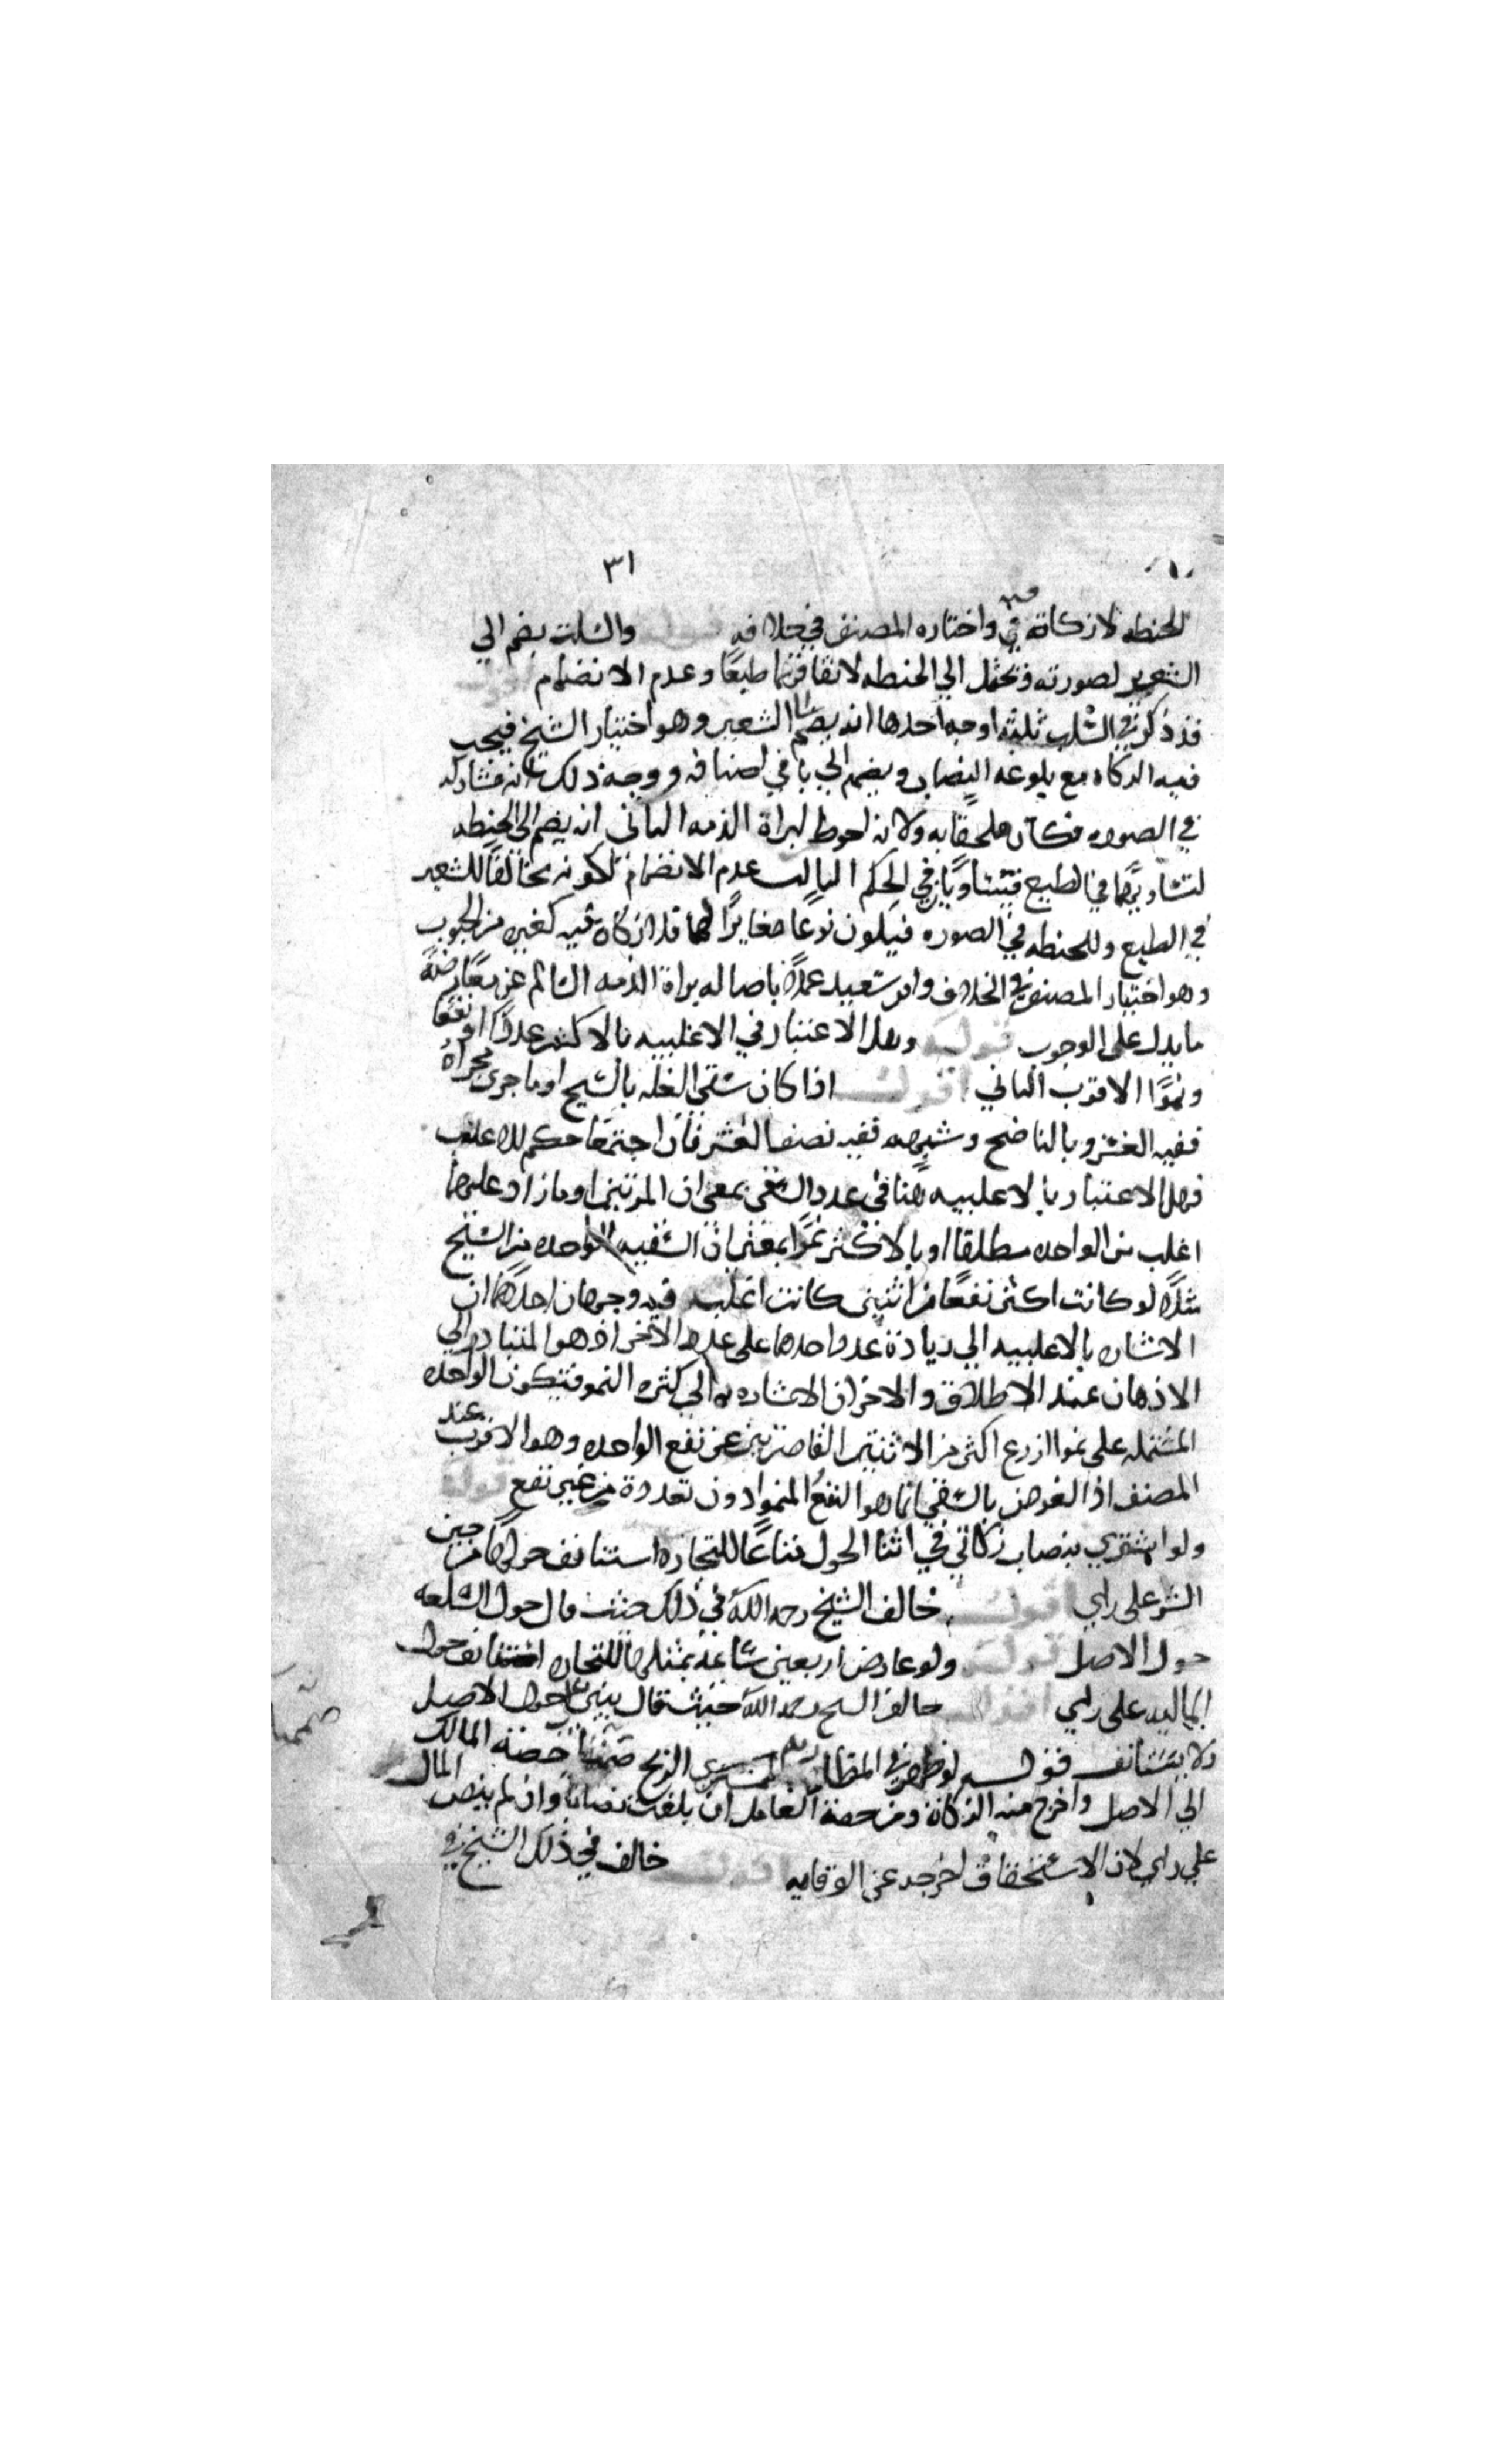 ٣١
الحنطه لا زكاة فيه واختاره المصنف في خلافه قوله والسلت يضم الي
الشعير لصورته ويحتمل الي الحنطه لاتفاقهما طبعا وعدم الانضمام اقول
قد ذكر في السلت ثلثه اوجه احدها انه يضم الي الشعير وهو اختيار الشيخ فيجب
فيه الزكاه مع بلوغه النصاب ويضم الي باقي اصنافه ووجه ذلك انه مشاركه
في الصوره فكان ملحقا به ولانه احوط لبراة الذمه الثاني انه يضم الي الحنطه
لتساويهما في الطبع فيتساويان في الحكم الثالث عدم الانضمام لكونه مخالفا للشعير
في الطبع وللحنطه في الصوره فيكون نوعا مغايرا لهما فلا زكاه فيه كغيره من الحبوب
وهو اختيار المصنف في الخلاف وابو سعيد عملا باصاله براة الذمه السالم عن معارضة
ما يدل على الوجوب قوله وهل الاعتبار في الاغلبيه بالاكثر عددا او نفعا
ونموا الاقرب الثاني اقول اذا كان سقي الغله بالسيح او ما جرى مجراه
ففيه العشر وبالناضح وشبهه ففيه نصف العشر فان اجتمعا حكم للاغلب
فهل الاعتبار بالاغلبيه هنا في عدد السقي بمعنى ان المرتين او ما زاد عليهما
اغلب من الواحده مطلقا او بالاكثر نموا بمعنى ان السقيه الواحده من السيح
مثلا لو كانت اكثر نفعا من اثنين كانت اغلب فيه وجهان احدهما ان
الاشاره بالاغلبيه الي زيادة عدد احدهما على عدد الآخر اذ هو المتبادر الي
الاذهان عند الاطلاق والاخر ان الاشاره به الي كثره النمو فتكون الواحده
المشتمله على نمو الزرع اكثر من الاثنتين القاصرتين عن نفع الواحده وهو الاقرب عند
المصنف اذ الغرض بالسقي انما هو النفع والنمو دون تعدده من غير نفع قوله
ولو اشتري بنصاب زكاتي في اثنا الحول متاعا للتجاره استانف حولها من حين
الشرا على راي اقول خالف الشيخ رحمه الله في ذلك حيث قال حول السلعه
حول الاصل قوله ولو عاوض اربعين شاه بمثلها للتجاره استانف حول
الماليه على راي اقول خالف الشيخ رحمه الله حيث قال يبني على حول الاصل
ولا يستانف قوله لو ظهر في المضاربه الربح ضمت حصة المالك
الي الاصل واخرج منه الزكاة ومن حصة العامل ان بلغت نصابا وان لم ينض المال
على راي لان الاستحقاق اخرجه عن الوقايه اقول خالف في ذلك الشيخ في